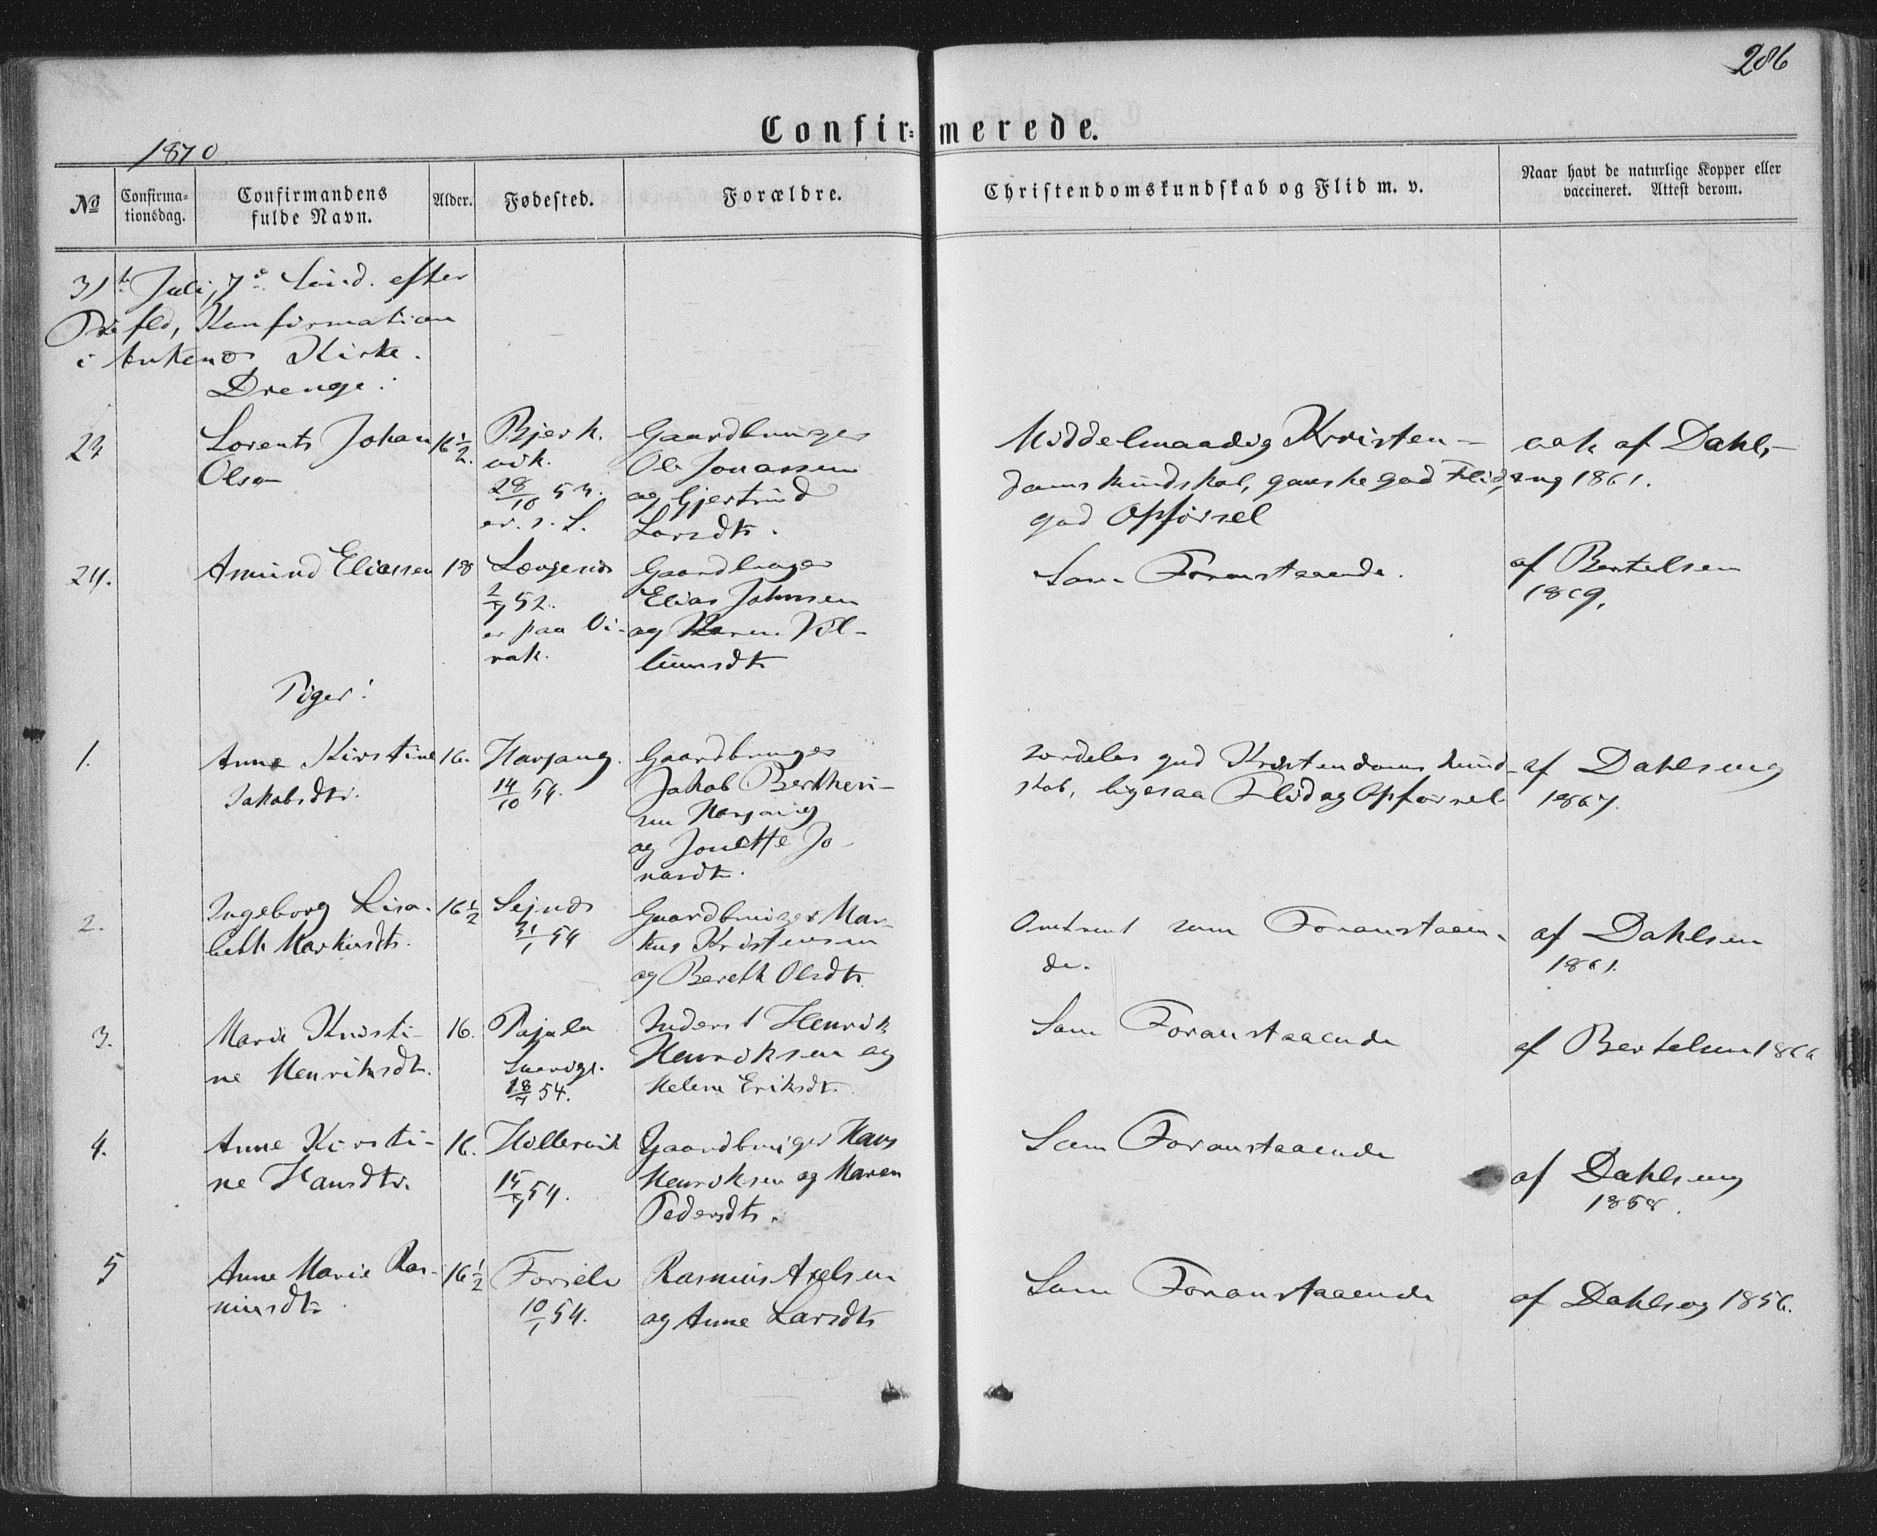 286
Confir=merede.
1870
No
Confirma-
tionsdag.
Confirmandens
fulde Navn.
Alder.
Fødested.
Forældre.
Christendomskundskab og Flid m. v.
Naar havt de naturlige Kopper eller
vaccineret. Attest derom.
31te Juli, 7de Sønd. efter
Trefld, Konfirmation
i Ankenes Kirke.
Drenge:
23
Lorents Johan
Olsen
16 1/2.
Bjerk.
vik.
28/10 53.
Gaardbruger
Ole Jonassen
og Gjertrud
Larsdtr.
Middelmaadig Kristen-
domskundskab, ganske god Flid,
god Opførsel
vak af Dahls-
eng 1861.
24.
Amund Eliassen
18
2/7 52.
er paa
Gaardbruger
Elias Johnsen
og Karen Vil-
lumsdtr
Som Foranstaaende.
af Bertelsen
1869.
Piger:
1.
Anne Kirstine
Jakobsdtr.
16.
Harjang.
14/10 54.
Gaardbruger
Jakob Berthen-
sen Harjang
og Jonette Jo-
nasdtr.
særdeles god Kristendomskund-
skab, ligesaa Flid og Opførsel
af Dahlseng
1867.
2.
Ingeborg Lisa-
beth Markusdtr.
16 1/2
31/1 54
Gaardbruger Mar-
kus Kristensen
og Bereth Olsdtr
Omtrent som Foranstaaen-
de.
af Dahlsen
1861.
3.
Marie Kristi-
ne Henriksdtr.
16.
Pajala
Sverige.
18/7 54.
Inderst Henrik
Henriksen og
Helene Eriksdtr.
Som Foranstaaende
af Bertelsen 1866
4.
Anne Kirsti-
ne Hansdtr.
16.
Hillervik
15/7 54.
Gaardbruger Hans
Henriksen og Maren
Pedersdtr.
Som Foranstaaende
af Dahlseng
1858.
5
Anne Marie Ras-
musdtr.
16 1/2
10/1 54.
Rasmus Axelsen
og Anne Larsdtr
Som Foranstaaende
af Dahlseng 1856.